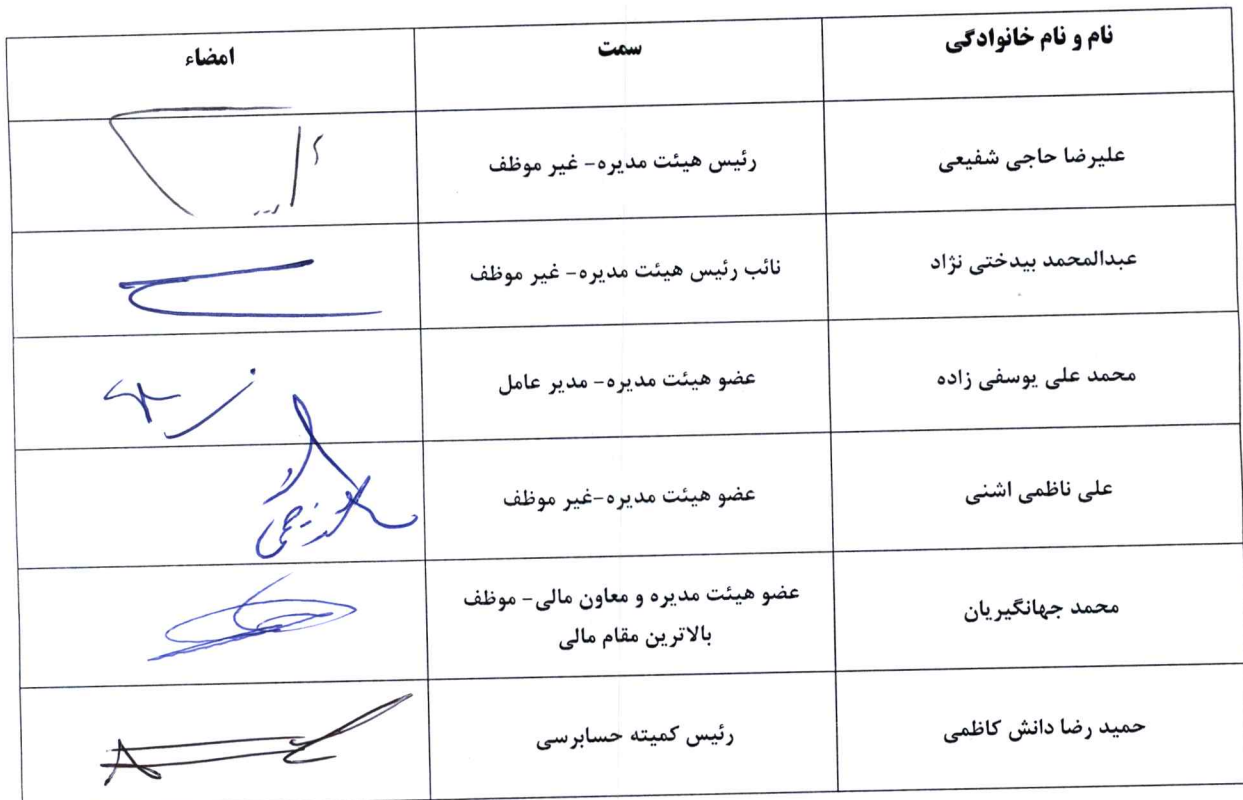 نام و نام خانوادگی سمت امضاء
علیرضا حاجی شفیعی رئیس هیئت مدیره- غیر موظف
عبدالمحمد بیدختی نژاد نائب رئیس هیئت مدیره- غیر موظف
محمد علی یوسفی زاده عضو هیئت مدیره- مدیر عامل
علی ناظمی اشنی عضو هیئت مدیره-غیر موظف
محمد جهانگیریان عضو هیئت مدیره و معاون مالی- موظف
بالاترین مقام مالی
حمید رضا دانش کاظمی رئیس کمیته حسابرسی